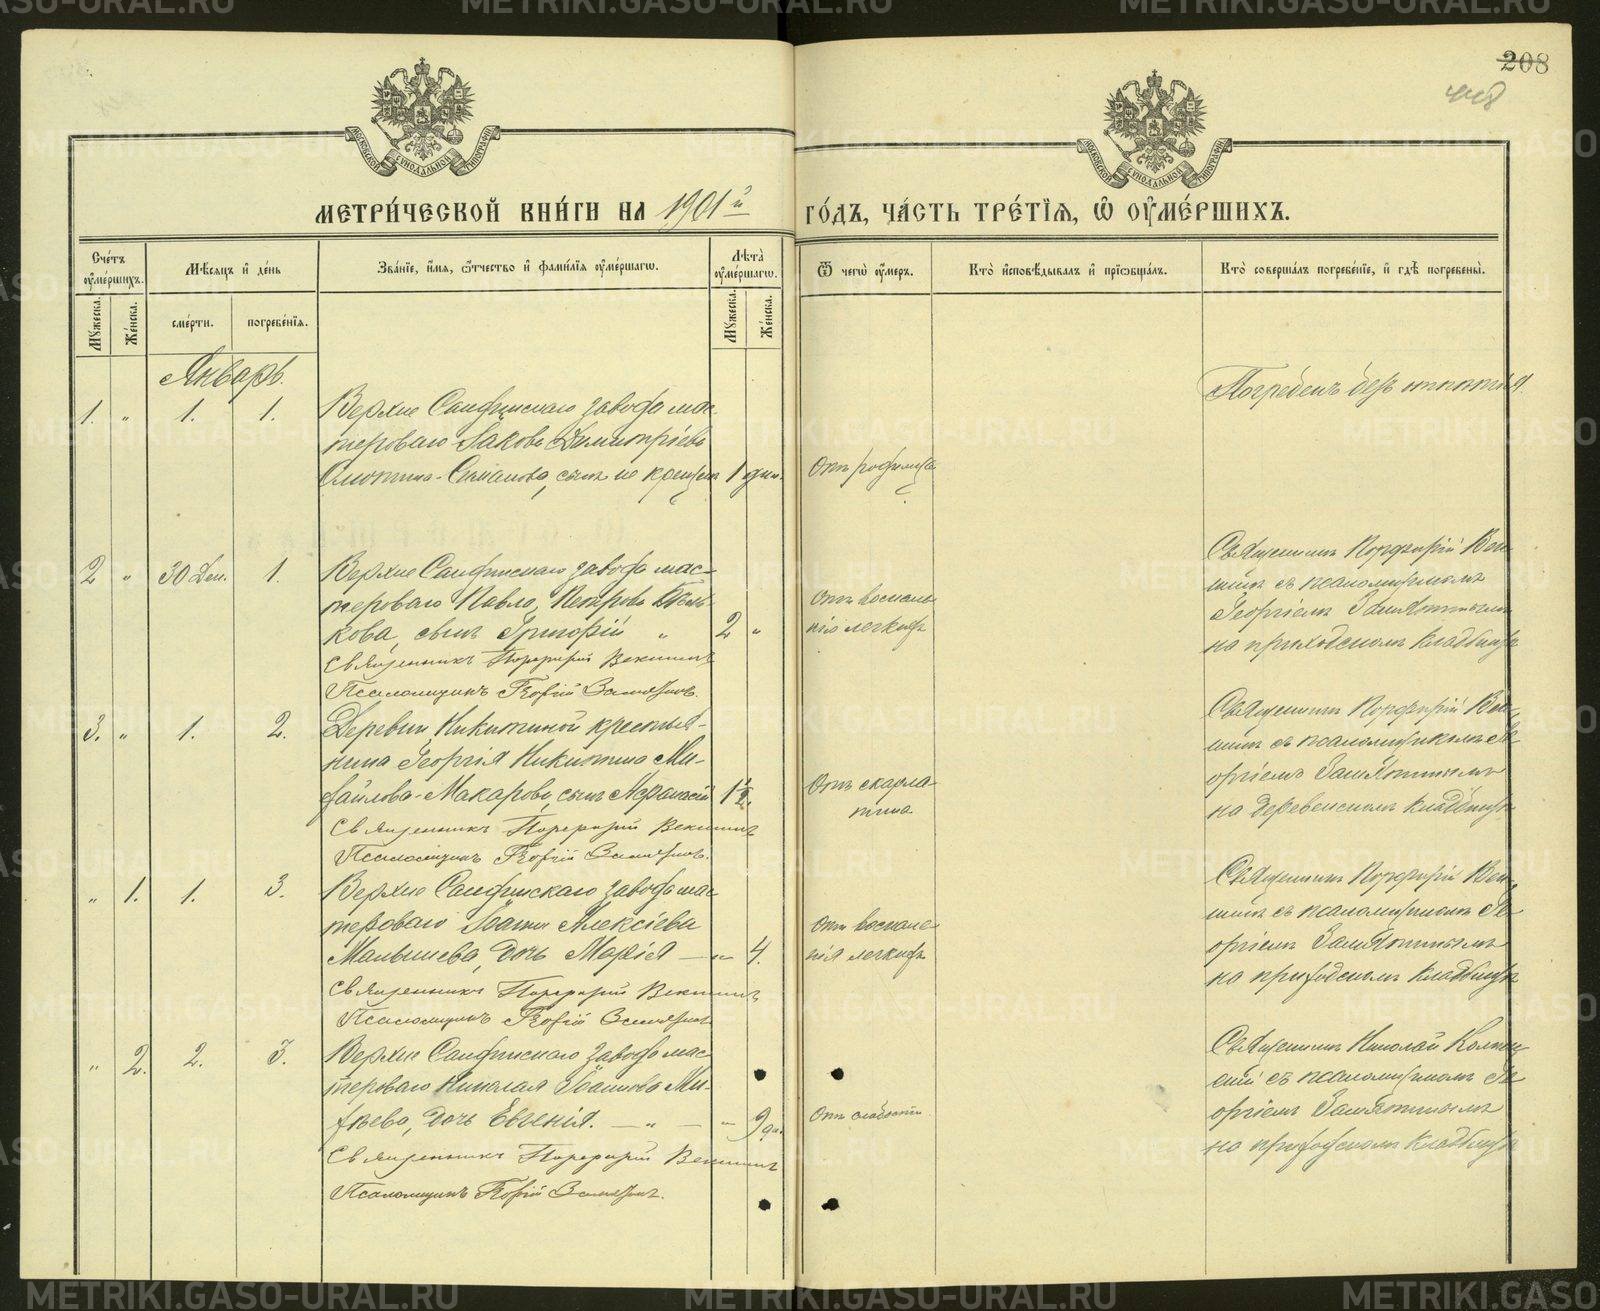 208
448
МОСКОВСКОЙ СѴНОДАЛЬНОЙ ТИПОГРАФІИ
МОСКОВСКОЙ СѴНОДАЛЬНОЙ ТИПОГРАФІИ
МЕТРИ́ЧЕСКОЙ КНИ́ГИ НА 1901й ГО́ДЪ, ЧА́СТЬ ТРЕ́ТІѦ, Ѽ ОУ҆МЕ́РШИХЪ.
Сче́тъ оу҆ме́ршихъ.
Мѣ́сяцъ и҆ де́нь
Зва́нїе, и҆́мя, ѻ҆́тчество и҆ фамі́лїя оу҆ме́ршагѡ.
Лѣ̀та̀ оу҆ме́ршагѡ.
Ѿ чегѡ̀ оу҆́меръ.
Кто̀ и҆сповѣ́дывалъ и҆ прїѡбща́лъ.
Кто̀ соверша́лъ погребе́нїе, и҆ гдѣ̀ погребены̀.
Мꙋ́жеска.
Же́нска.
сме́рти.
погребе́нїя.
Мꙋ́жеска.
Же́нска.
Январь.
1. " 1. 1.
Верхне Саифинскаго завода мас-
тероваго Iакова Димитріева
сынъ не крещен 1 дня.
Отъ родимца
Погребенъ безъ отпѣтія
2 " 30 Дек. 1.
Верхне Саифинскаго завода мас-
тероваго Павла Петрова Бѣль-
кова, сынъ Григорій " 2 "
Священникъ Порфирій Векшинъ
Псаломщикъ Георгій Замятнинъ.
Отъ воспале-
нія легкихъ
Священникъ Порфирій Век-
шинъ съ псаломщикомъ
Георгіемъ Замятнинымъ
на приходскомъ кладбищѣ
3. " 1. 2.
Деревни Никитиной крестья-
нина Георгія Никитина Ми-
хайлова-Макарова, сынъ Афанасій 1½.
Священникъ Порфирій Векшинъ
Псаломщикъ Георгій Замятнинъ.
Отъ скарла-
тина
Священникъ Порфирій Век-
шинъ съ псаломщикомъ Ге-
оргіемъ Замятнинымъ
на деревенскомъ кладбищѣ
" 1. 1. 3.
Верхне Саифинскаго завода мас-
тероваго Iоанна Алексіева
Малышева, дочь Марія — " 4.
Священникъ Порфирій Векшинъ
Псаломщикъ Георгій Замятнинъ
Отъ воспале-
нія легкихъ
Священникъ Порфирій Век-
шинъ съ псаломщикомъ Ге-
оргіемъ Замятнинымъ
на приходскомъ кладбищѣ
" 2. 2. 3.
Верхне Саифинскаго завода мас-
тероваго Николая Iоаннова Ми-
хѣева, дочь Евгенія. — " — " 9 дн.
Священникъ Порфирій Векшинъ
Псаломщикъ Георгій Замятнинъ.
Отъ слабости
Священникъ Николай
съ псаломщикомъ Ге-
оргіемъ Замятнинымъ
на приходскомъ кладбищѣ
METRIKI.GASO-URAL.RU